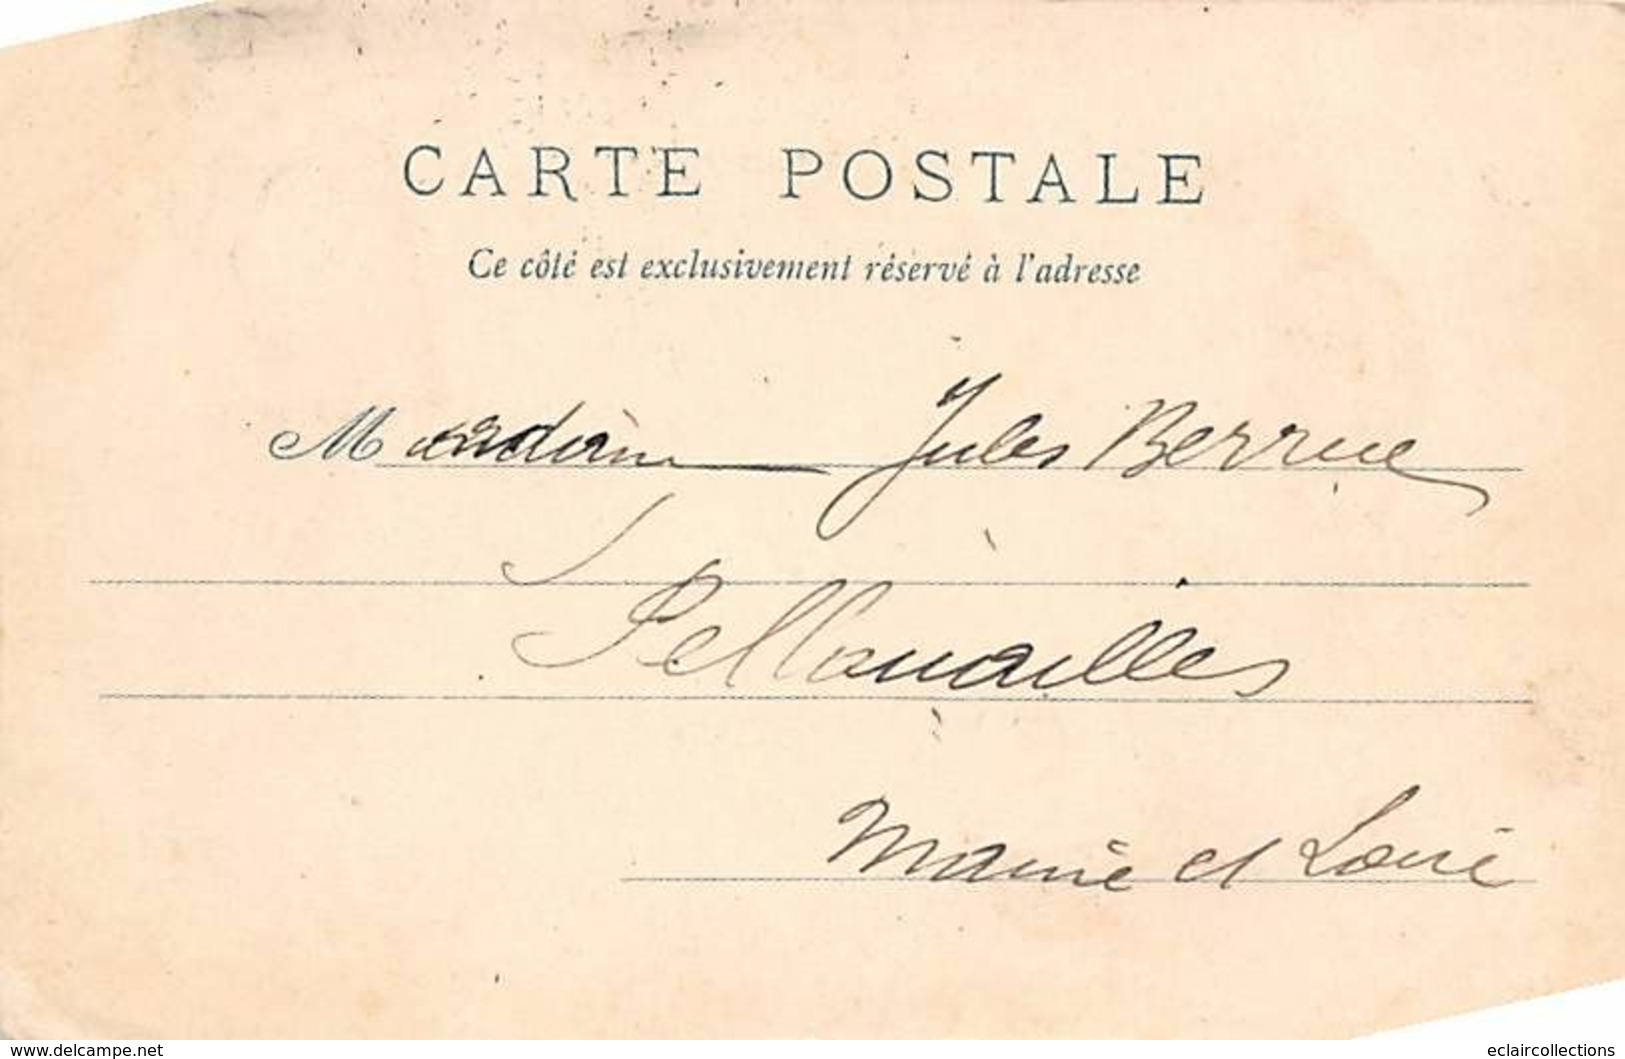 CARTE POSTALE
Ce côté est exclusivement réservé à l'adresse
Madame Jules Berrue
Pellouailles
Maine et Loire
www.delcampe.net
eclaircollections